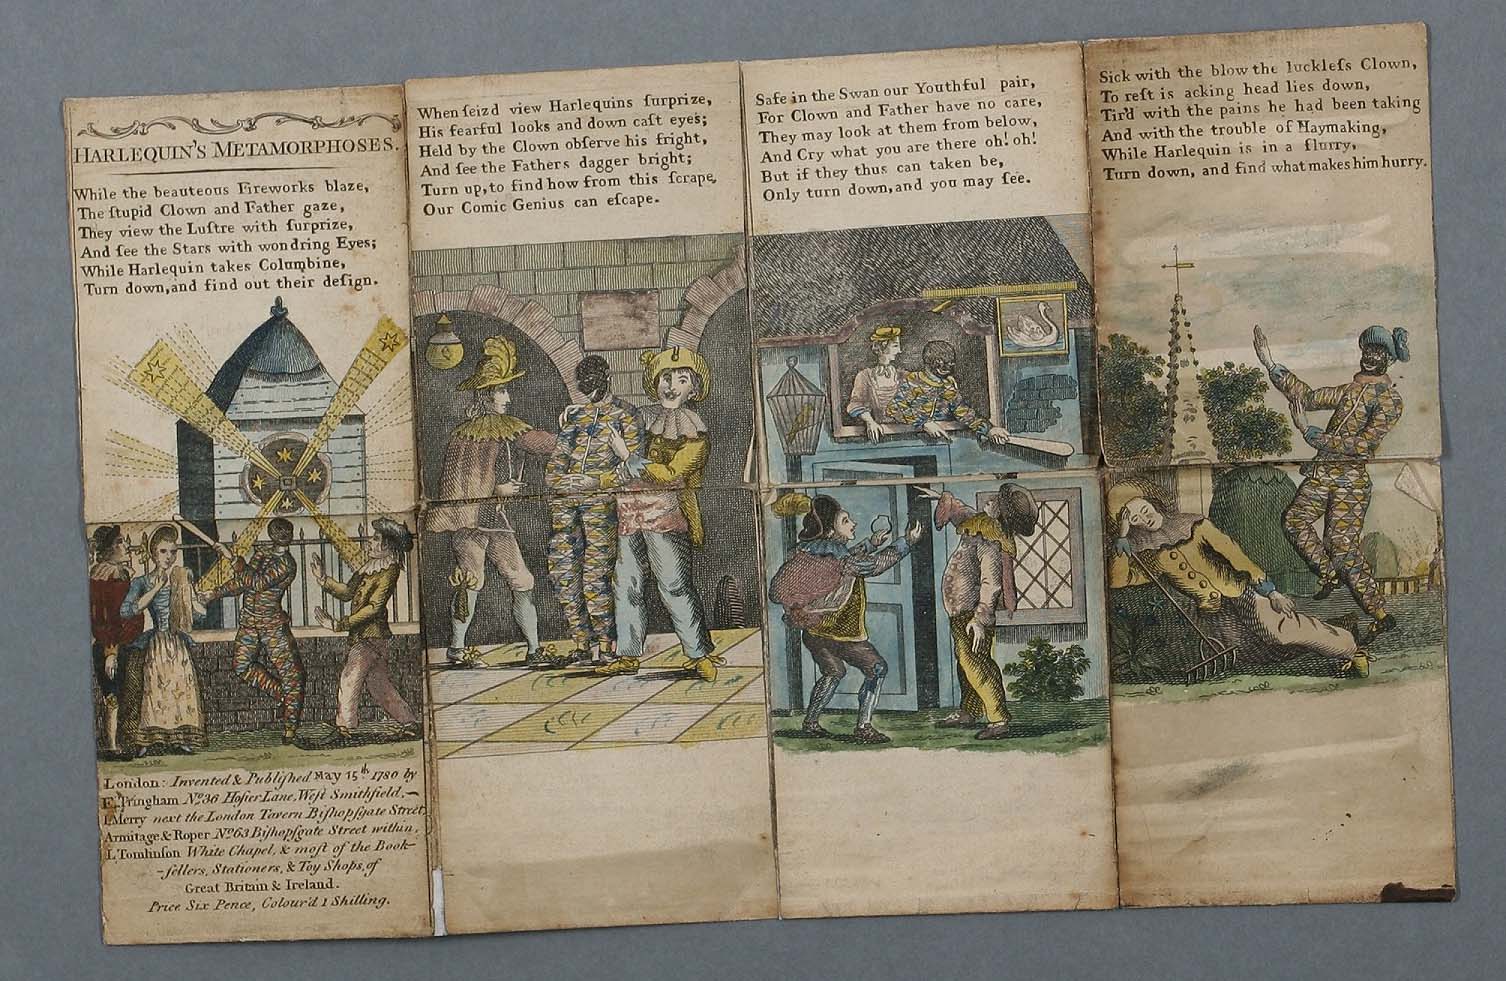 HARLEQUIN'S METAMORPHOSES.
While the beauteous Fireworks blaze,
The ſtupid Clown and Father gaze,
They view the Luſtre with ſurprize,
And ſee the Stars with wondring Eyes;
While Harlequin takes Columbine,
Turn down, and find out their deſign.
London: Invented & Publiſhed May 15th 1780 by
E. Tringham No. 36 Hoſier Lane, Weſt Smithfield.—
I Merry next the London Tavern Biſhopſgate Street,
Armitage & Roper No. 63 Biſhopſgate Street within,
L Tomlinſon White Chapel, & moſt of the Book-
-ſellers, Stationers, & Toy Shops, of
Great Britain & Ireland.
Price Six Pence, Colour'd 1 Shilling.
When ſeizd view Harlequins ſurprize,
His fearful looks and down caſt eyes;
Held by the Clown obſerve his fright,
And ſee the Fathers dagger bright;
Turn up, to find how from this ſcrape,
Our Comic Genius can eſcape.
Safe in the Swan our Youthful pair,
For Clown and Father have no care,
They may look at them from below,
And Cry what you are there oh! oh!
But if they thus can taken be,
Only turn down, and you may ſee.
Sick with the blow the luckleſs Clown,
To reſt is acking head lies down,
Tir'd with the pains he had been taking
And with the trouble of Haymaking,
While Harlequin is in a flurry,
Turn down, and find what makes him hurry.